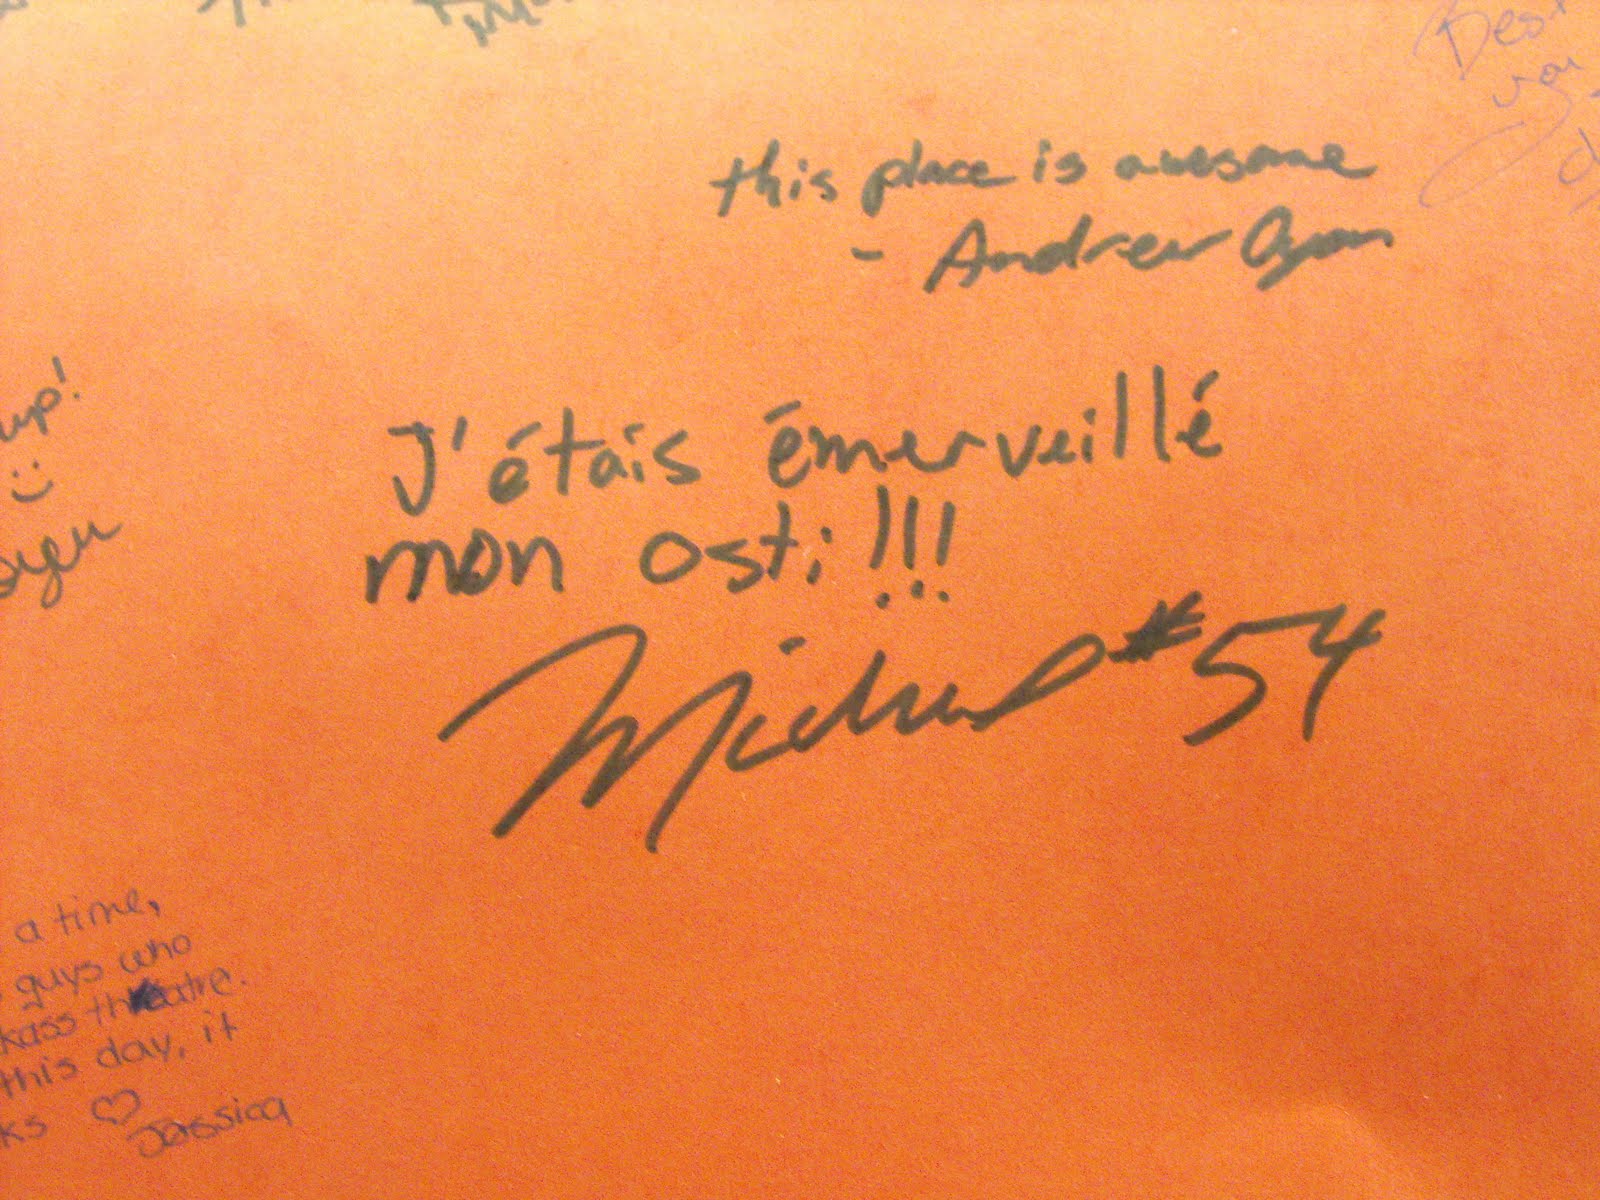 Best
you
this place is awesome
- Andrew
up!
J'étais émerveillé
mon osti!!!
Michael #54
a time,
guys who
kass theatre.
this day, it
ks ♡ Jessica